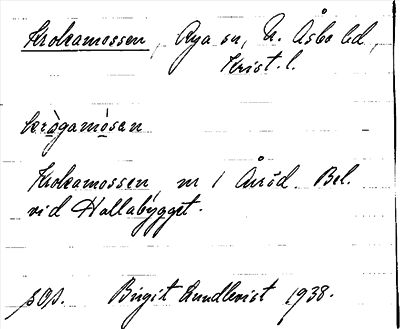 Krokamossen, Rya sn, N. Åsbo hd,
Krist. l.
kråogamosan
Krokamossen, nr 1 Åsröd. Bel.
vid Hallabygget.
sop. Birgit Lundkvist 1938.